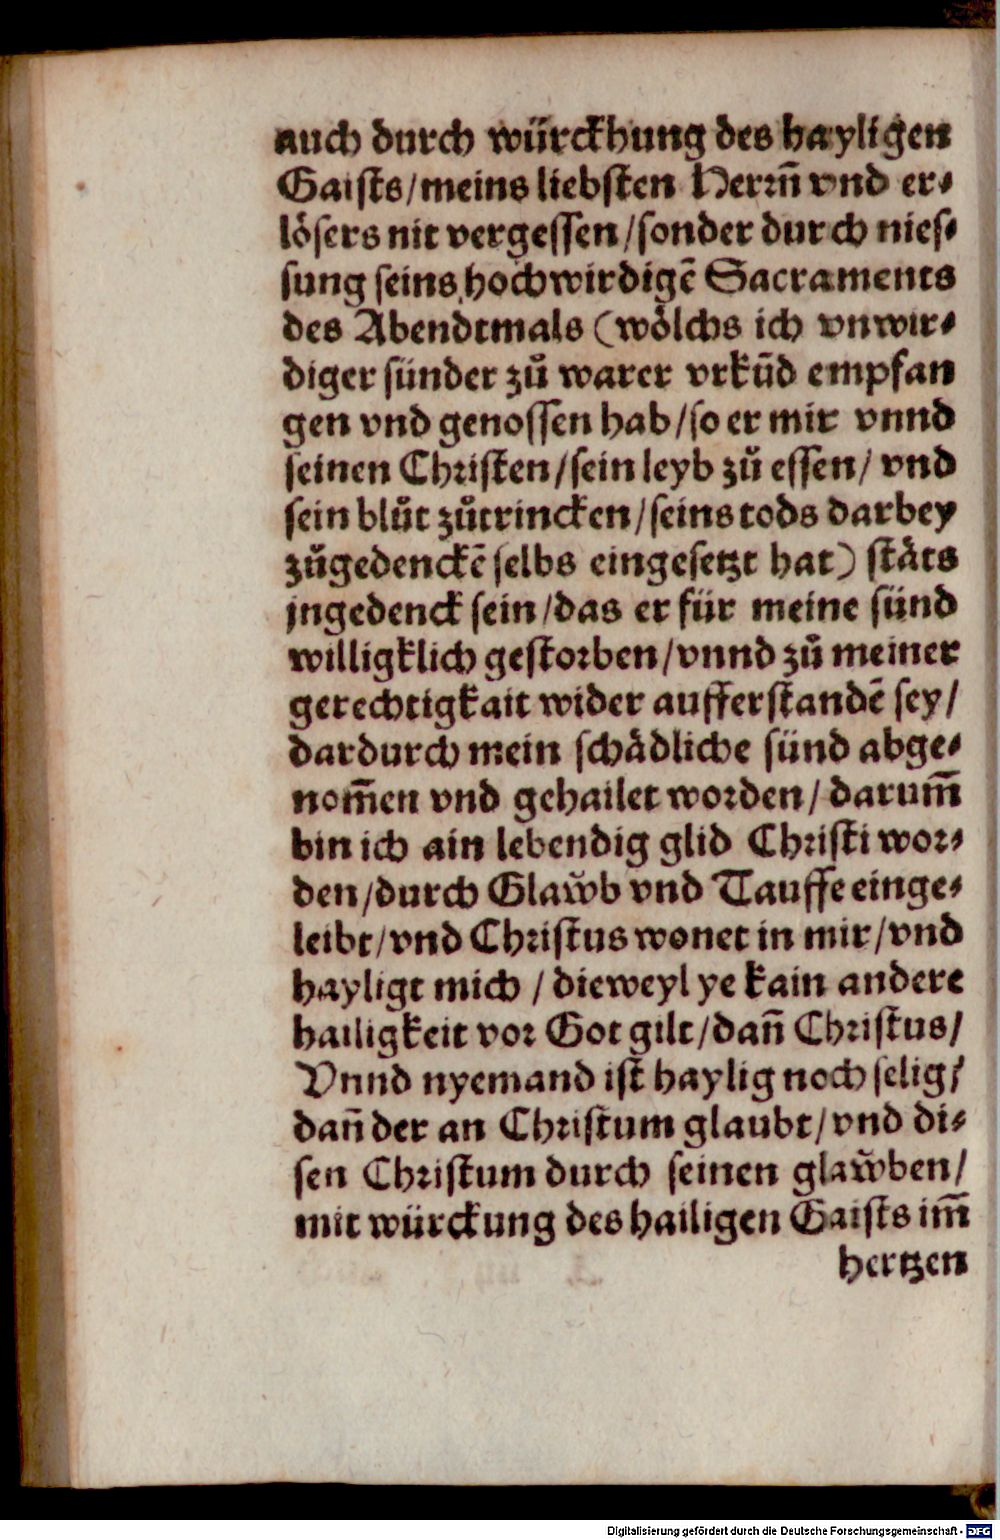 auch durch würckhung des hayligen
Gaists/meins liebsten Herrn̄ vnd er⸗
lösers nit vergessen/sonder durch nies⸗
sung seins hochwirdigẽ Sacraments
des Abendtmals (wölchs ich vnwir⸗
diger sünder zů warer vrkũd empfan
gen vnd genossen hab/so er mir vnnd
seinen Christen/sein leyb zů essen/ vnd
sein blůt zůtrincken/seins tods darbey
zůgedenckẽ selbs eingesetzt hat) stäts
jngedenck sein/das er für meine sünd
willigklich gestorben/vnnd zů meiner
gerechtigkait wider aufferstandẽ sey/
dardurch mein schädliche sünd abge⸗
nom̄en vnd gehailet worden/ darum̄
bin ich ain lebendig glid Christi wor⸗
den/durch Glaw̌b vnd Tauffe einge⸗
leibt/vnd Christus wonet in mir/vnd
hayligt mich / dieweyl ye kain andere
hailigkeit vor Got gilt/dañ Christus/
Vnnd nyemand ist haylig noch selig/
dañ der an Christum glaubt/vnd di⸗
sen Christum durch seinen glaw̌ben/
mit würckung des hailigen Gaists im̄
hertzen
Digitalisierung gefördert durch die Deutsche Forschungsgemeinschaft - DFG